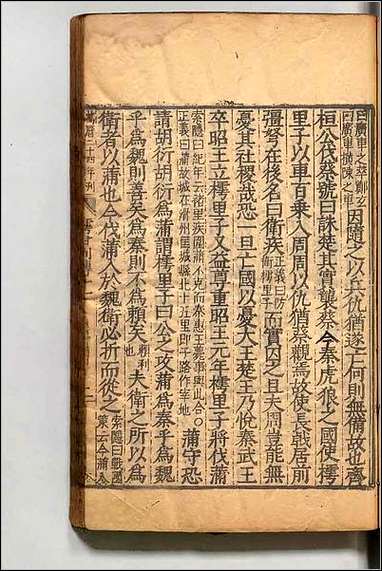 曰廣車之萃鄭玄
曰廣車橫陳之車因隨之以兵仇猶遂亡何則無備故也齊
桓公伐蔡號曰誅楚其實襲蔡今秦虎狼之國使樗
里子以車百乗入周周以仇猶蔡觀焉故使長戟居前
彊弩在後名曰衛疾正義曰防
衛樗里子而實囚之且夫周豈能無
憂其社稷哉恐一旦亡國以憂大王楚王乃悅秦武王
卒昭王立樗里子又益尊重昭王元年樗里子將伐蒲
索隱曰紀年云褚里疾圍蒲不克而秦惠王薨事與此合〇
正義曰蒲故城在滑州匡城縣北十五里即子路作宰地蒲守恐
請胡衍胡衍為蒲謂樗里子曰公之攻蒲為秦乎為魏
乎為魏則善矣為秦則不為賴矣夫衛之所以為
衛者以蒲也今伐蒲入於魏衛必折而從之索隱曰戰國
策云今蒲入